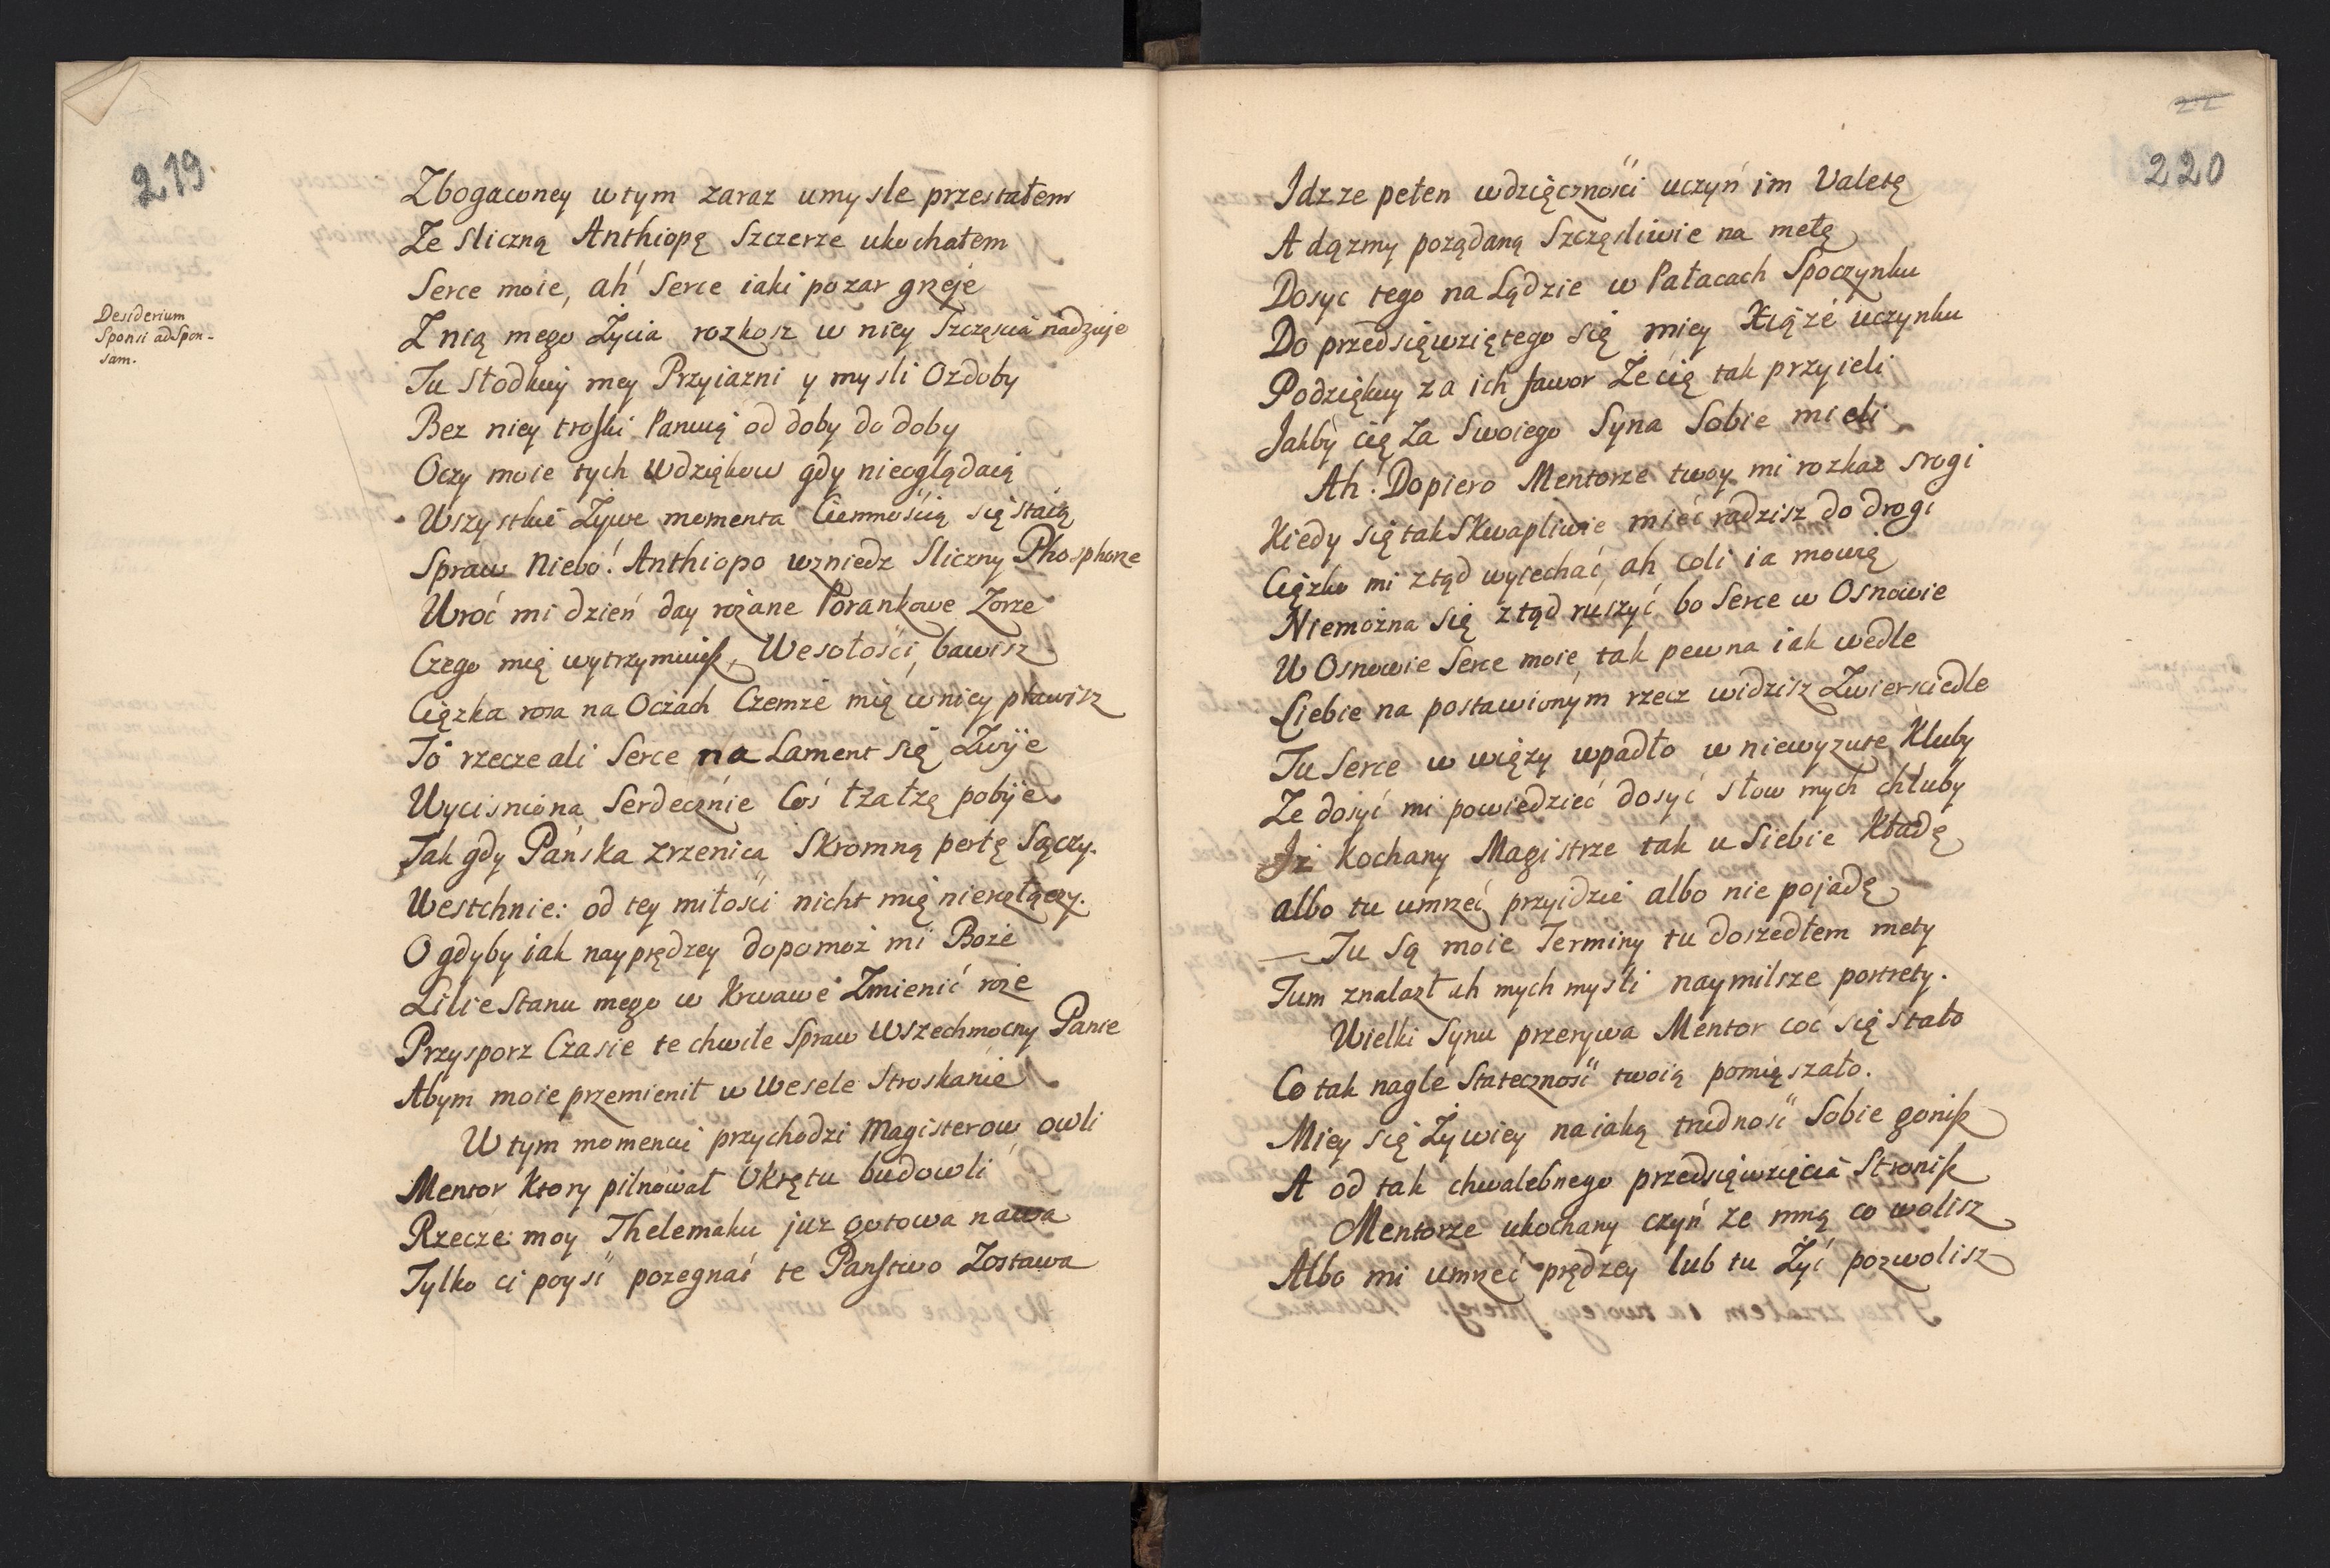 219.
Zbogaconey w tym zaraz umysle przestałem
Ze sliczną Anthiopę Szczerze ukochałem
Serce moie, ah! Serce iaki pozar grzeje
Z nią mego Życia rozkosz w niey Szczęscia nadzieje
Desiderium
Sponsi ad Spon-
sam.
Tu Słodkiey mey Przyiazni y mysli Ozdoby
Bez niey troski Panuią od doby do doby
Oczy moie tych wdziękow gdy nieoglądaią
Wszystkie Żywe momenta Ciemnością się staią
Spraw Niebo! Anthiopo wzniedz Sliczny Phosphorze
Wroć mi dzień day rożane Porankowe Zorze
Czego mię wytrzymuiesz, Wesołości, bawisz
Ciężka rosa na Oczach Czemże mię w niey pławisz
To rzecze ali Serce na Lament się Zwije
Wycisniona Serdecznie Coś łza łzę pobije
Jak gdy Pańska zrzenica Skromną perłę Sączy.
Westchnie: od tey miłości nicht mię
O gdyby iak nayprędzey dopomoż mi Boże
Lilie Stanu mego w Krwawe Zmienić roże
Przysporz Czasie te chwile Spraw Wszechmocny Panie
Abym moie przemienił w Wesele Stroskanie
W tym momenci przychodzi Magisterow owli
Mentor Ktory pilnował Okrętu budowli
Rzecze: moy Thelemaku juz gotowa nawa
Tylko ci poyść pozegnać te Panstwo Zostawa
22
220
Idzze pełen wdzięczności uczyń im Valetę
A dązmy pożądaną Szczęśliwie na metę
Dosyc tego na Lądzie w Pałacach Spoczynku
Do przedsięwziętego się miey Xiąże uczynku
Podziękuy za ich fawor Że cię tak przyieli
Jakby cię za Swoiego Syna Sobie mieli
Ah! Dopiero Mentorze twoy mi rozkaz srogi
Kiedy się tak Skwapliwie mieć radzisz do drogi
Ciężko mi ztąd wyiechać, ah coli ia mowię
Niemożna się ztąd ruszyć bo Serce w Osnowie
W Osnowie Serce moie tak pewna iak wedle
Siebie na postawionym rzecz widzisz Zwiersciedle
Tu Serce w więzy wpadło w niewyzute Kluby
Ze dosyć mi powiedzieć dosyć słow mych chluby
Iż kochany Magistrze tak u Siebie Kładę
albo tu umrzeć przyidzie albo nie pojadę
Tu Są moie Terminy tu doszedłem mety
Tum znalazł ah mych myśli naymilsze portrety.
Wielki Synu przerywa Mentor coć się stało
Co tak nagle Stateczność twoię pomięszało.
Miey się Żywiey na iaką trudność Sobie gonisz
A od tak chwalebnego przedsięwzięcia Stronisz
Mentorze ukochany czyń ze mną co wolisz
Albo mi umrzeć prędzey lub tu Żyć pozwolisz